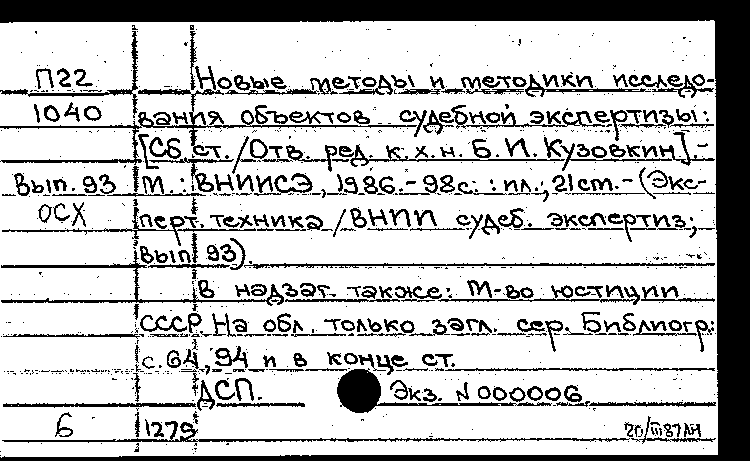 П22 Новые методы и методики исследо-
1040 вания объектов судебной экспертизы:
[Сб. ст. / Отв. ред. к.х.н. Б. И. Кузовкин].-
Вып. 93 М.: ВНИИСЭ, 1986.- 98с. : ил.; 21 см. - (Экс-
ОСХ перт. техника / ВНИИ судеб. экспертиз;
Вып 93).
В надзаг. также: М-во юстиции
СССР. На обл. только загл. сер. Библиогр:
с. 64, 94 и в конце ст.
ДСП. Экз. N 000006.
6 1279 20/III 87